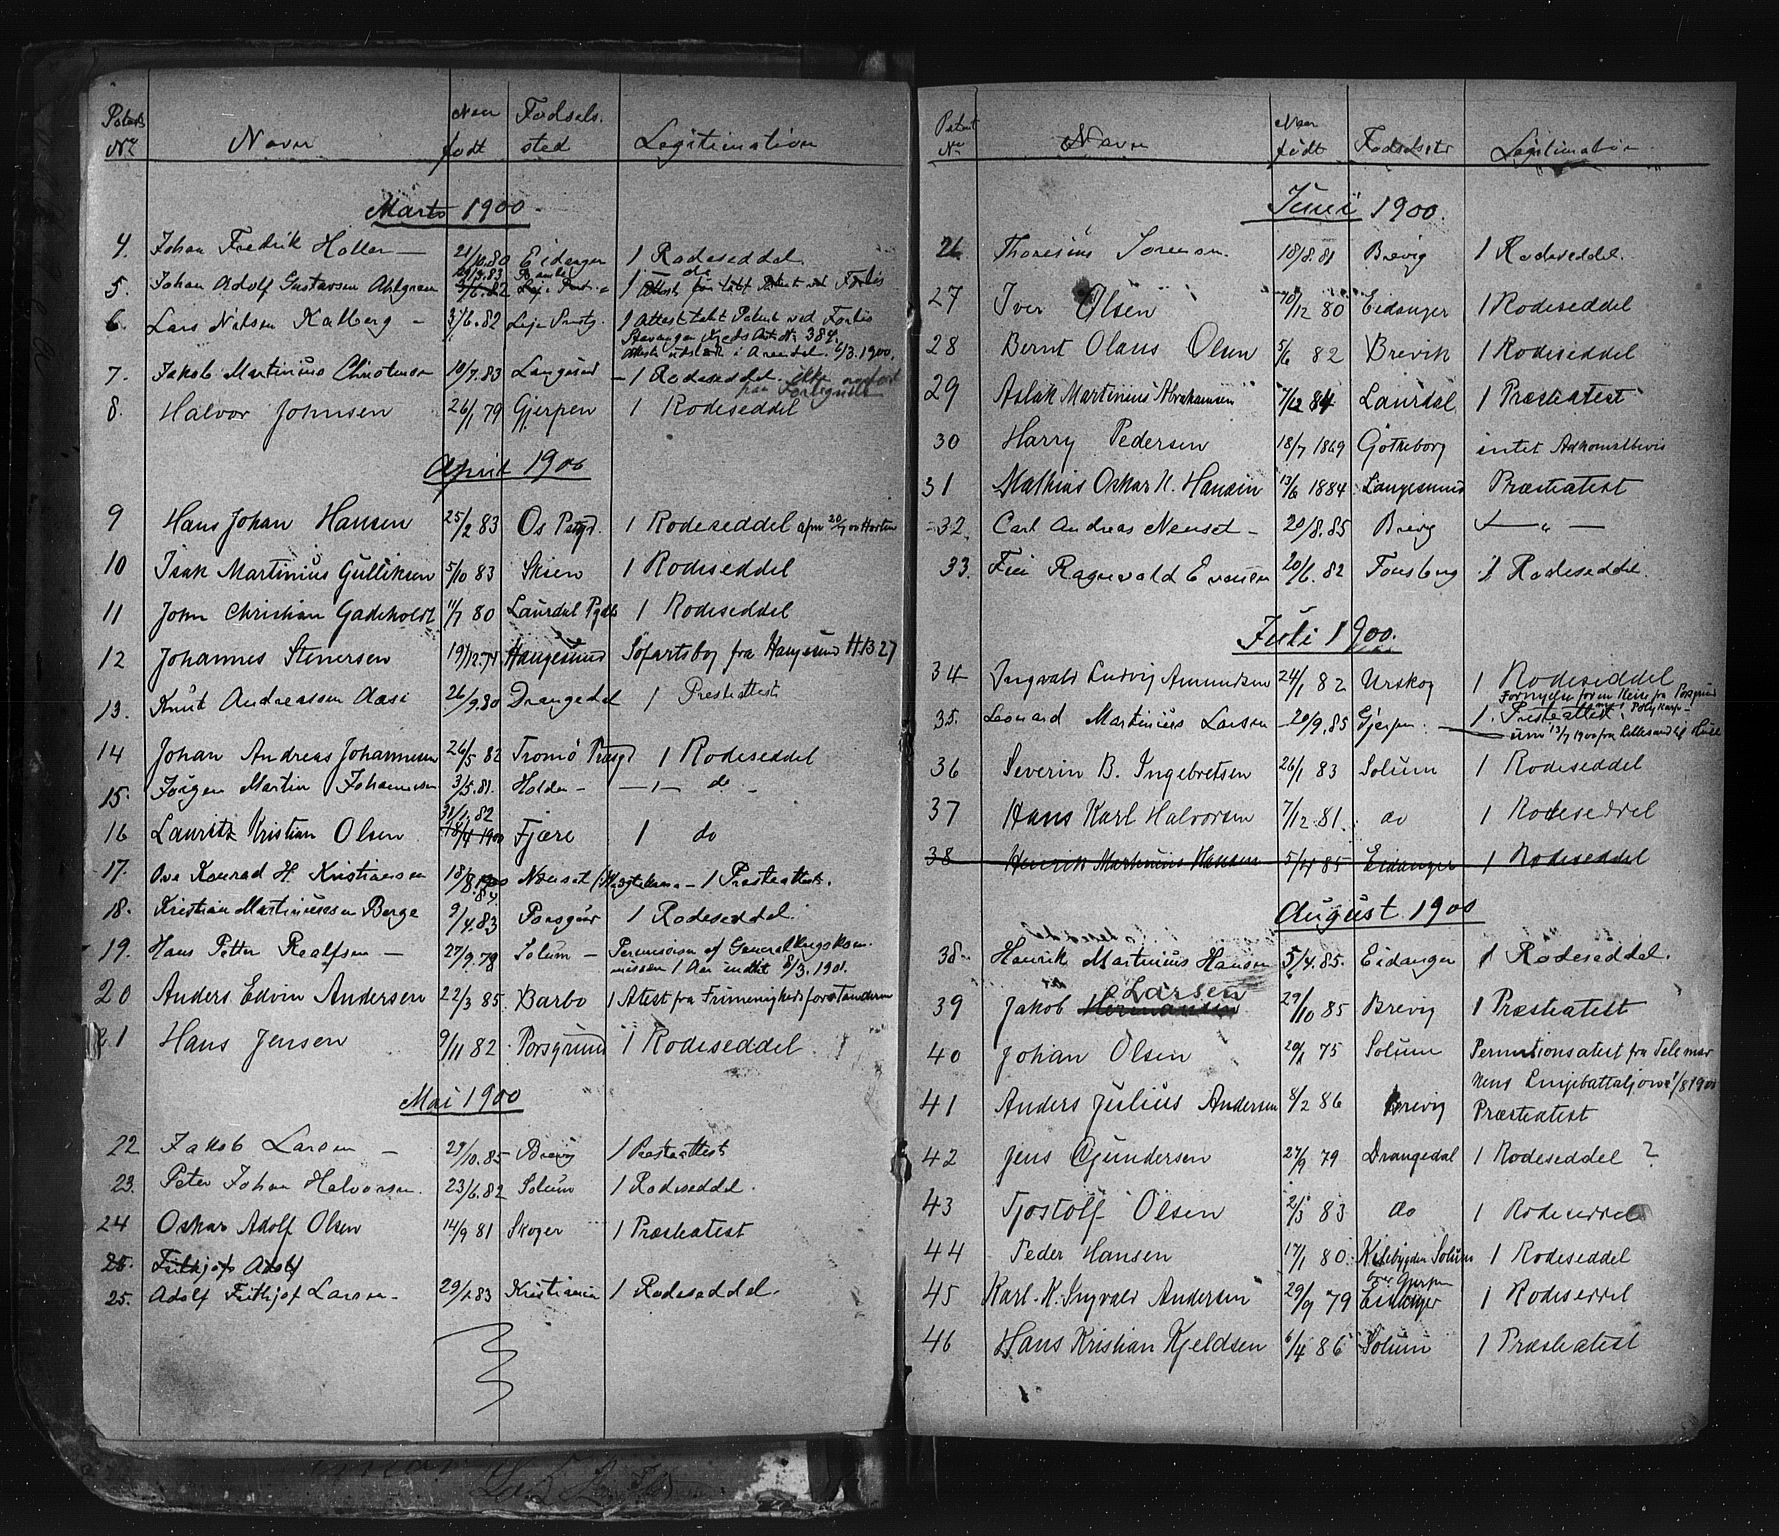 Patents Nr. Navn Naar født Fødsels sted Legitimation
Marts 1900
4. Johan Fredrik Holler — 21/10.80 Eidanger 1 Rodeseddel
5. Johan Adolf Gustavsen Ahlgren 29/3.83 Bamle 1 do
1 Attest for tabt Patent ved Forlis
6. Lars Nilsen Kalberg — 31/6.82 1 Attest tabt Patent ved Forlis
Stavanger Kreds Ant Nr 384.
Attest udstedt i Arendal 6/3.1900.
7. Jakob Martinius Christensen 10/7.83 Langesund — 1 Rodeseddel ikke
8. Halvor Johnsen 26/1 79 Gjerpen 1 Rodeseddel
April 1900
9 Hans Johan Hansen 25/2 83 Os Pgd. 1 Rodeseddel Horten
10 Isak Martinius Gulliksen 5/10 83 Skien 1 Rodeseddel
11 John Christian Gadeholdt 11/7 80 Laurdal Pgd 1 Rodeseddel
12 Johannes Stenersen 19/12.74 Haugesund Søfartsbog fra Haugesund H.B 27
13. Knut Andreassen Aasi 26/9.80 Drangedal 1 Presteattest
14 Johan Andreas Johannesen 26/5 82 Tromø Præsgd 1 Rodeseddel
15. Jørgen Martin Johannesen 3/5.81. Holden — — „ — do —
31/1.82
16 Lauritz Kristian Olsen 18/4 1900 Fjære 1 do
17. Ove Konrad H. Kristiansen 18/8.1900 — 1 Presteattest.
84
18. Kristian Martiniussen Berge 9/4.83 Porsgrund 1 Rodeseddel.
19. Hans Petter Realfsen — 27/9.78 Solum — Permission af Generalkrigskom
mission 1 Aar indtil 8/3.1901.
20 Anders Edvin Andersen 22/3 85. Barbo 1 Atest fra Frimenighedsforstanderen
21 Hans Jensen 9/11 82 Porsgrund 1 Rodeseddel
Mai 1900
22 Jakob Larsen — 29/10.85 Brevig 1 Presteattest
23. Peter Johan Halvorsen. 23/6.82 Solum 1 Rodeseddel.
24 Oskar Adolf Olsen 14/9 81 Skoger 1 Præsteatest
25. Frithjof Adolf
25. Adolf Frithjof Larsen — 29/1.83 Kristiania 1 Rodeseddel.
Patent Nr. Navn Naar født Fødselsste Legitimation
Juni 1900.
26 Thoresius Sørensen. 18/8.81 Brevig 1 Rodeseddel.
27 Iver Olsen 10/12 80 Eidanger 1 Rodeseddel
28 Bernt Olaus Olsen 5/6 82 Brevik 1 Rodeseddel
29 Aslak Martinius Abrahamsen 7/12 84 Laurdal 1 Præsteatest
30 Harry Pedersen 18/7 1869 Gøteborg intet Adkomstbevis
31 Mathias Oskar N. Hansen 13/6 1884 Langesund Præsteatest
32. Carl Andreas Nenset — 20/8.85 Brevig — „ —
33. Ragnvald Evensen 20/6. 82 Tønsberg 1 Rodeseddel.
Juli 1900.
34 Ingvald Ludvig Amundsen 24/1 82 Urskog 1 Rodeseddel
Fornyelse for en Reise fra Porsgrund
35. Leonard Martinius Larsen — 20/9.85 Gjerpen. — 1. Presteattest.
um 13/7 1900 fra Lillesand til
36 Severin B. Ingebretsen 26/1 83 Solum 1 Rodeseddel
37 Hans Karl Halvorsen 7/12.81. do 1 Rodeseddel
38 Henrik Martinius Hansen 5/4 85 Eidanger 1 Rodeseddel
August 1900
38. Henrik Martinius Hansen 5/4.85. Eidanger 1 Rodeseddel.
Larsen
39 Jakob Hermansen 29/10 85 Brevig 1 Præsteatest
40 Johan Olsen 20/1 75 Solum Permitionsatest fra Telemar
kens Linjebattaljon 1/8 1900
41 Anders Julius Andersen 8/2 86 Brevig Præsteatest
42 Jens Gundersen 27/9 79 Drangedal 1 Rodeseddel ?
43 Tjostolf Olsen 2/3 83 do 1 Rodeseddel
44 Peder Hansen 17/1 80. Kilebygden Solum 1 Rodeseddel
Gjerpen
45 Karl. K. Ingvald Andersen 29/9 79 Eidanger 1 Rodeseddel
46 Hans Kristian Kjeldsen 6/4 86 Solum 1 Præsteatest